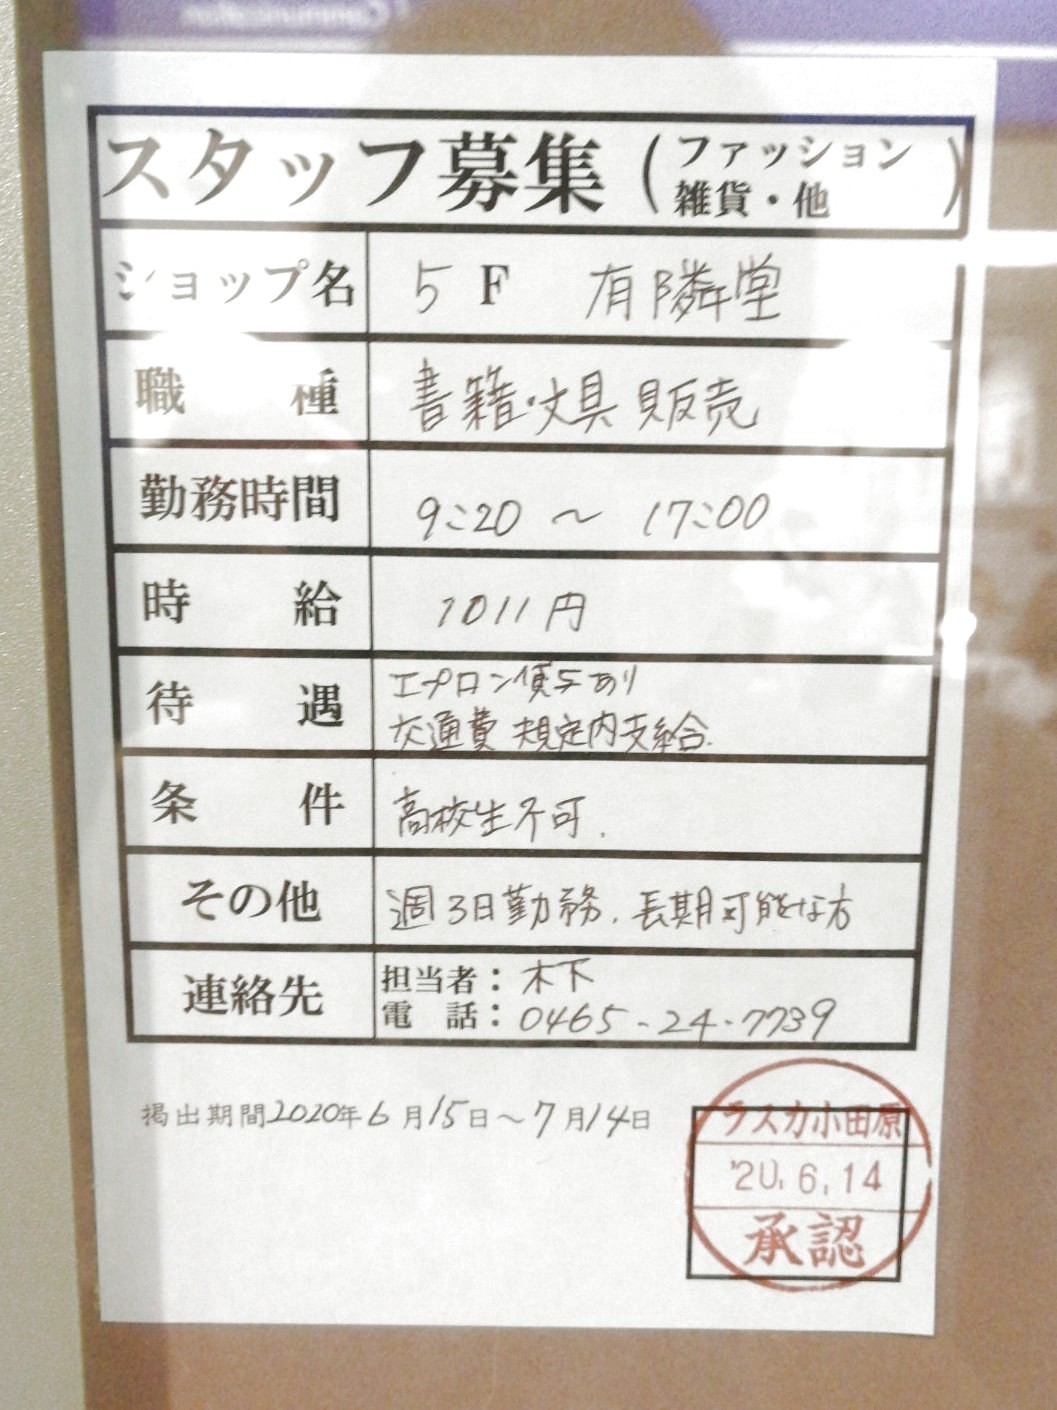 Communication
スタッフ募集(ファッション
雑貨・他)
ショップ名 5F 有隣堂
職種 書籍・文具販売
勤務時間 9:20 ～ 17:00
時給 1011円
待遇 エプロン貸与あり
交通費 規定内支給.
条件 高校生不可.
その他 週3日勤務.長期可能な方
連絡先 担当者:木下
電話:0465-24-7739
掲出期間2020年6月15日～7月14日
ラスカ小田原
'20.6.14
承認